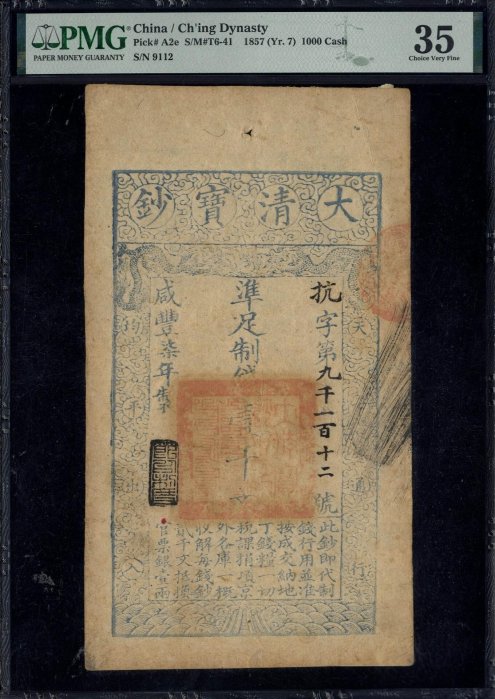 PMG
PAPER MONEY GUARANTY
China / Ch'ing Dynasty
Pick# A2e S/M#T6-41 1857 (Yr. 7) 1000 Cash
S/N 9112
35
Choice Very Fine
鈔寶清大
抗字第九千一百十二號
準足制錢壹千文
咸豐柒年
天
通行
均平出入
此鈔即代制
錢行用並准
按成交納地
丁錢糧一切
稅課捐項京
外各庫一概
收解每錢鈔
貳千文抵換
官票銀壹兩